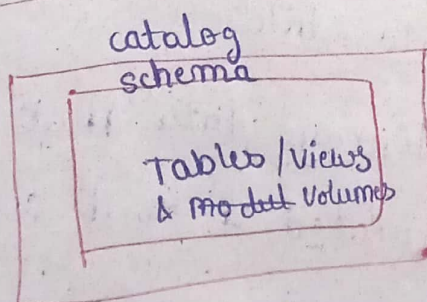 catalog
schema
Tables/Views
& model Volumes